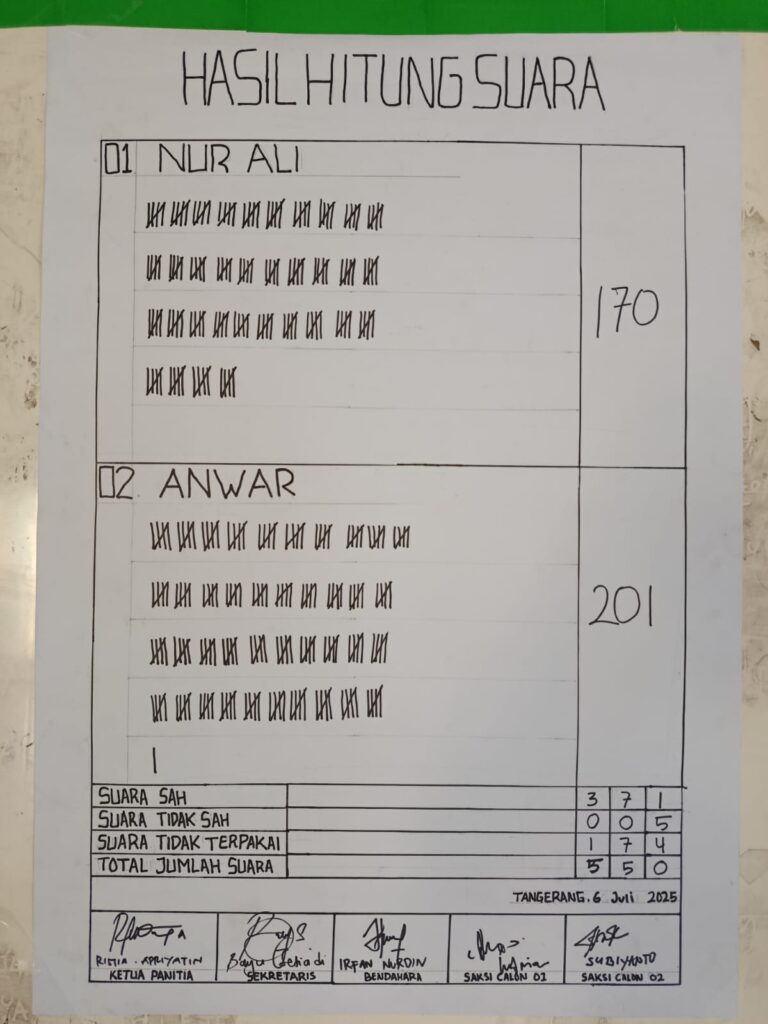 HASIL HITUNG SUARA
01 NUR ALI
170
02. ANWAR
201
SUARA SAH 3 7 1
SUARA TIDAK SAH 0 0 5
SUARA TIDAK TERPAKAI 1 7 4
TOTAL JUMLAH SUARA 5 5 0
TANGERANG, 6 Juli 2025
APRIYATIN IRFAN NURDIN SUBIYANTO
KETUA PANITIA SEKRETARIS BENDAHARA SAKSI CALON 01 SAKSI CALON 02